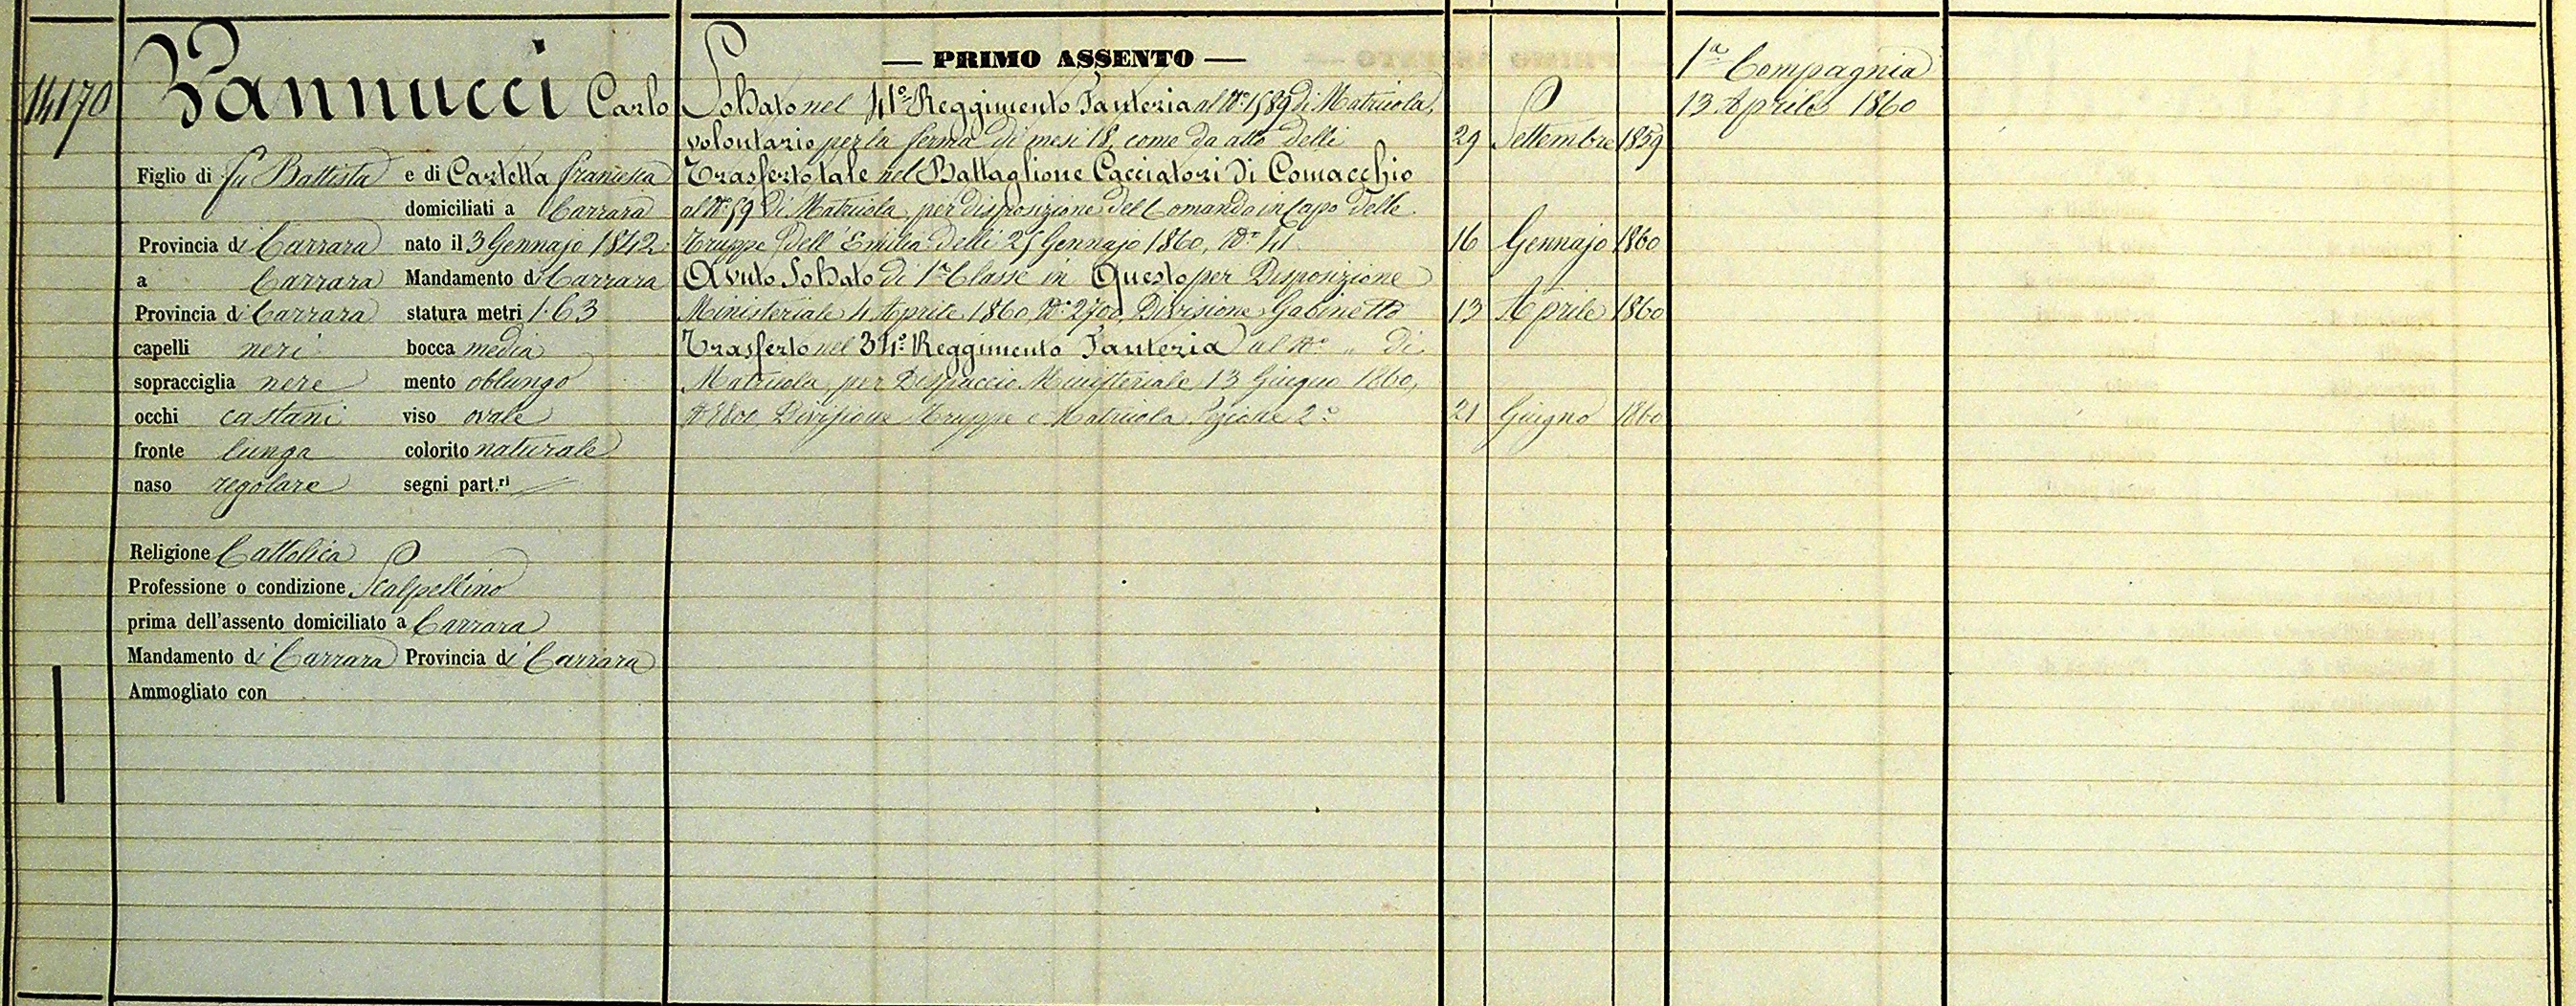 14170
Vannucci Carlo
Figlio di fu Battista e di Cartetta Francesca
domiciliati a Carrara
Provincia di Carrara nato il 3 Gennajo 1842
a Carrara Mandamento di Carrara
Provincia di Carrara statura metri 1.63
capelli neri bocca media
sopracciglia nere mento oblungo
occhi castani viso ovale
fronte lunga colorito naturale
naso regolare segni part.ri
Religione Cattolica
Professione o condizione Scalpellino
prima dell'assento domiciliato a Carrara
Mandamento di Carrara Provincia di Carrara
Ammogliato con
— PRIMO ASSENTO —
Soldato nel 41º Reggimento Fanteria al Nº 1589 di Matricola,
volontario per la ferma di mesi 18, come da atto delli 29 Settembre 1859
Trasferto tale nel Battaglione Cacciatori di Comacchio
al Nº 59 di Matricola, per disposizione del Comando in Capo delle
Truppe dell'Emilia delli 25 Gennajo 1860, Nº 41. 16 Gennajo 1860
Avuto Soldato di 1ª Classe in Questo per Disposizione
Ministeriale 4 Aprile 1860 Nº 2700, Divisione Gabinetto 13 Aprile 1860
Trasferto nel 34º Reggimento Fanteria al Nº „ di
Matricola, per Dispaccio Ministeriale 13 Giugno 1860,
Nº 8800, Divisione Truppe e Matricola Sezione 2ª 21 Giugno 1860
1ª Compagnia
13 Aprile 1860